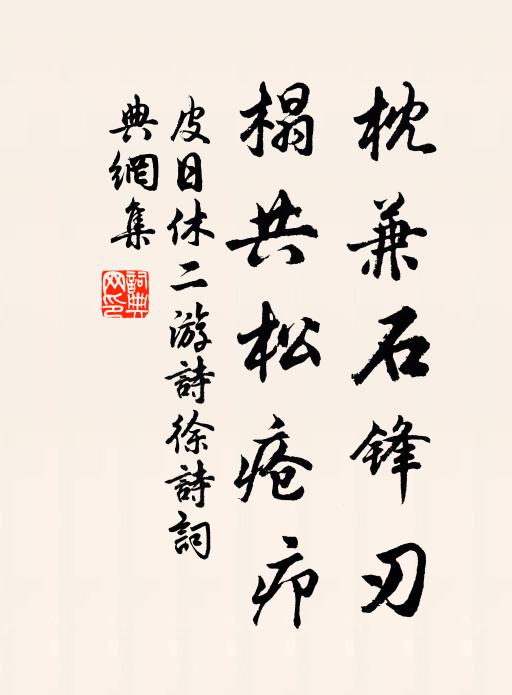 枕兼石锋刃
榻共松疮疖
皮日休二游詩徐詩詞
典網集
詞典
网印